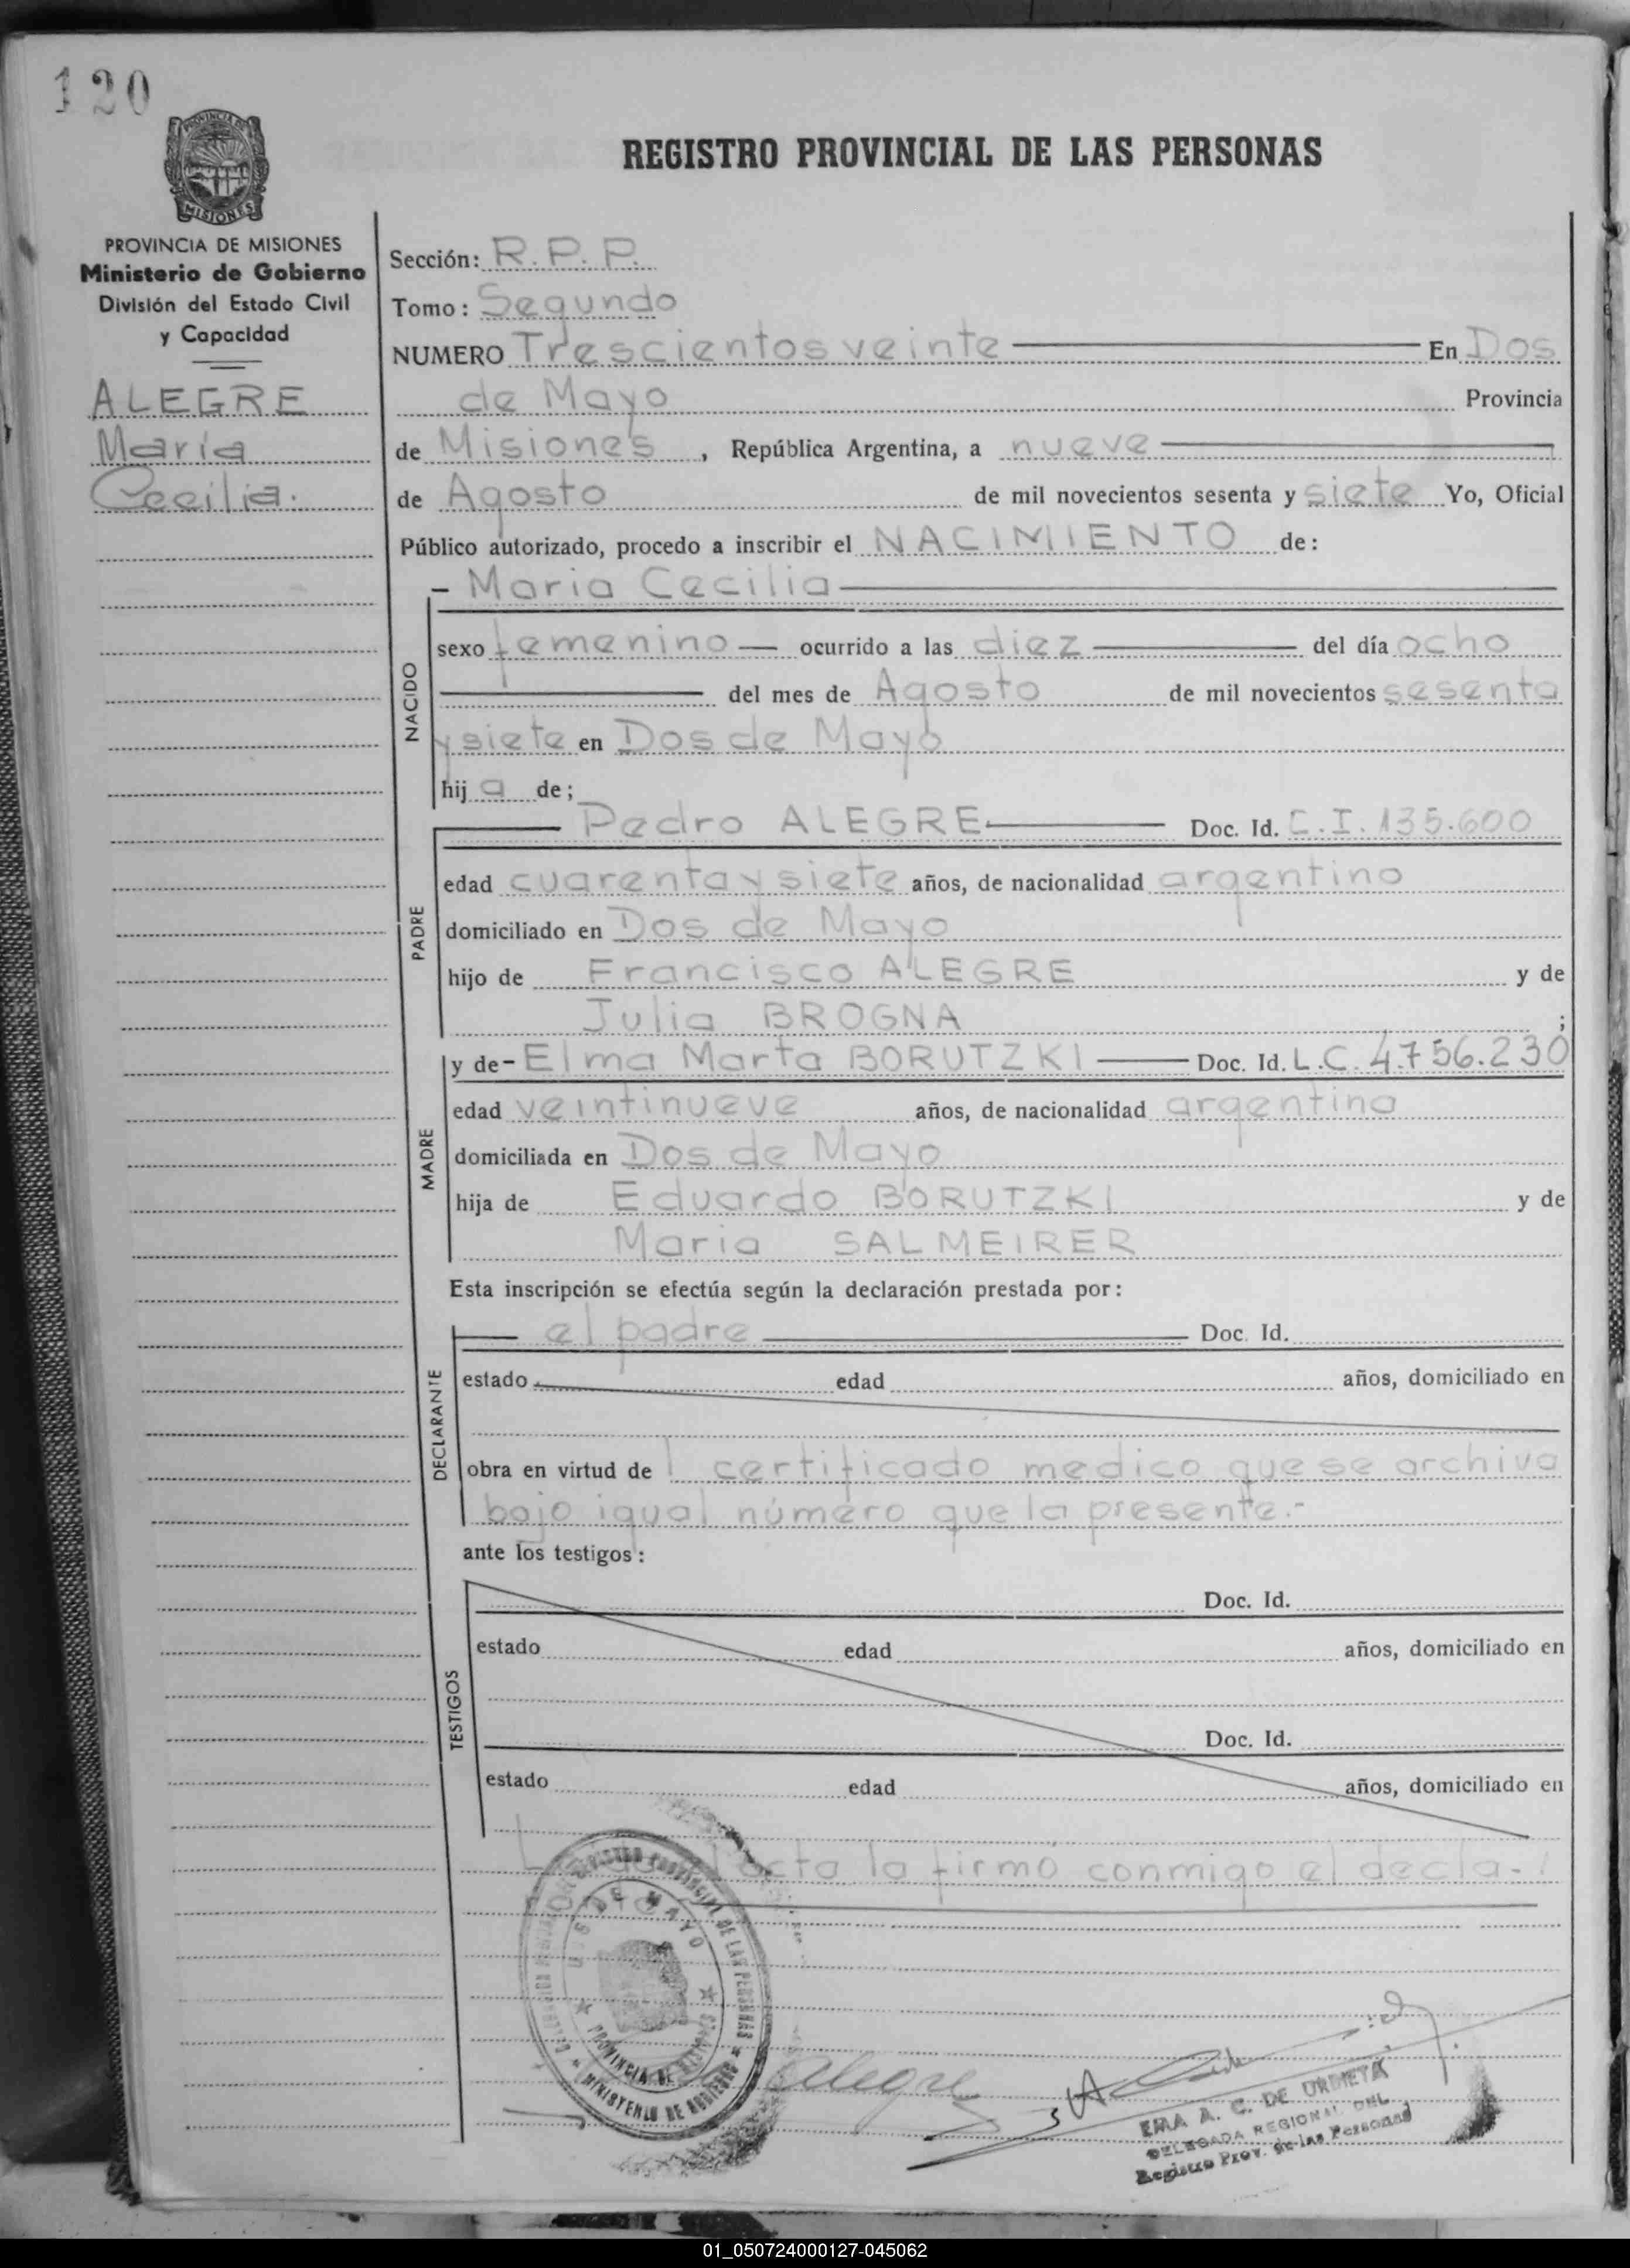 120
PROVINCIA DE
MISIONES
REGISTRO PROVINCIAL DE LAS PERSONAS
PROVINCIA DE MISIONES
Ministerio de Gobierno
División del Estado Civil
y Capacidad
ALEGRE
María
Cecilia.
Sección: R.P.P.
Tomo: Segundo
NUMERO Trescientos veinte En Dos
de Mayo Provincia
de Misiones, República Argentina, a nueve
de Agosto de mil novecientos sesenta y siete Yo, Oficial
Público autorizado, procedo a inscribir el NACIMIENTO de:
NACIDO
- Maria Cecilia
sexo femenino — ocurrido a las diez del día ocho
del mes de Agosto de mil novecientos sesenta
y siete en Dos de Mayo
hij a de;
PADRE
Pedro ALEGRE Doc. Id. C.I. 135.600
edad cuarenta y siete años, de nacionalidad argentino
domiciliado en Dos de Mayo
hijo de Francisco ALEGRE y de
Julia BROGNA ;
MADRE
y de - Elma Marta BORUTZKI Doc. Id. L.C. 4.756.230
edad veintinueve años, de nacionalidad argentina
domiciliada en Dos de Mayo
hija de Eduardo BORUTZKI y de
Maria SALMEIRER
Esta inscripción se efectúa según la declaración prestada por:
DECLARANTE
el padre Doc. Id.
estado edad años, domiciliado en
obra en virtud de l certificado medico que se archiva
bajo igual número que la presente.-
ante los testigos:
TESTIGOS
Doc. Id.
estado edad años, domiciliado en
Doc. Id.
estado edad años, domiciliado en
acta la firmo conmigo el decla-
REGISTRO PROVINCIAL DE LAS PERSONAS
DOS DE MAYO
PROVINCIA DE MISIONES
MINISTERIO DE GOBIERNO
Alegre
EMA A. C. DE URBIETA
DELEGADA REGIONAL DEL
Registro Prov. de las Personas
01_050724000127-045062